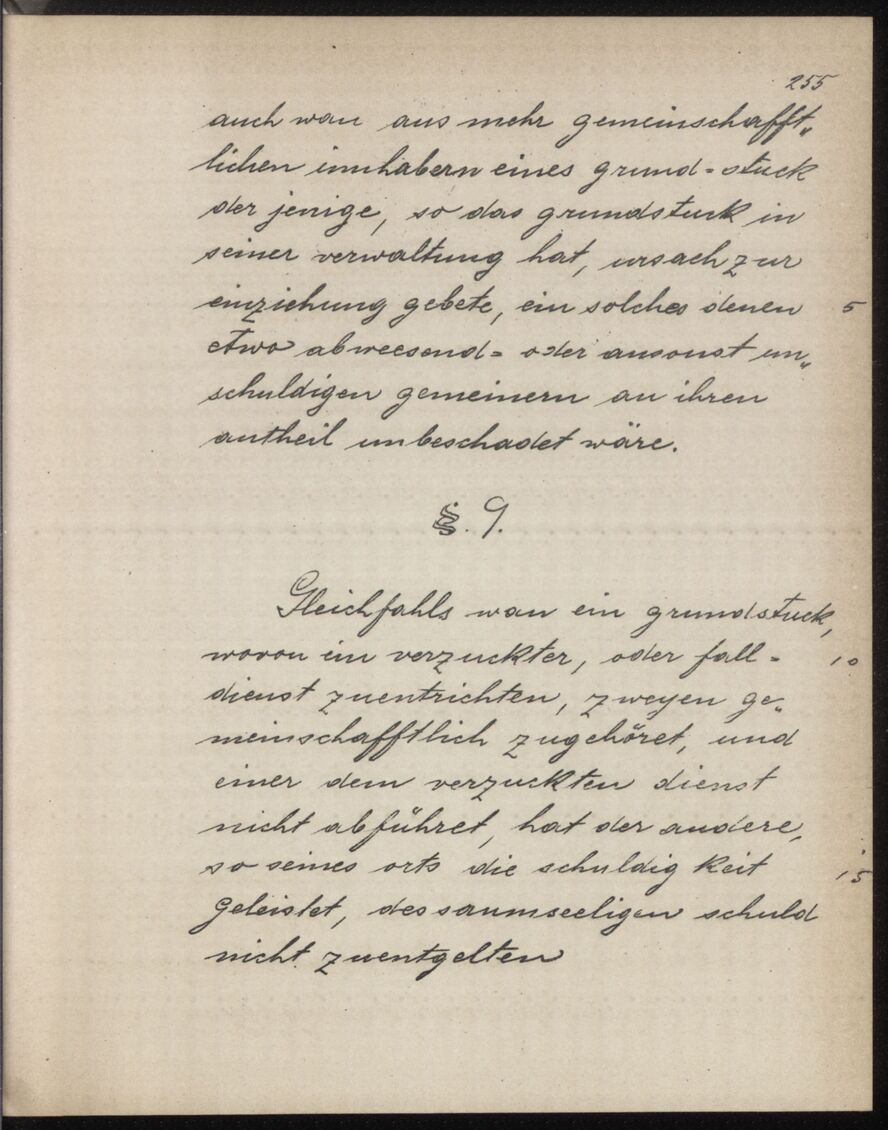 255
auch wan aus mehr gemeinschafft„
lichen innhabern eines grund=stuck
der jenige, so das grundstuck in
seiner verwaltung hat, ursach zur
einziehung gebete, ein solches denen 5
etwo abweesend= oder ansonst un„
schuldigen gemeinern an ihren
antheil unbeschadet wäre.
§. 9.
Gleichfahls wan ein grundstuck,
wovon ein verzuckter, oder fall= 10
dienst zuentrichten, zweyen ge„
meinschafftlich zugehöret, und
einer dem verzuckten dienst
nicht abführet, hat der andere,
so seines orts die schuldigkeit 15
geleistet, des saumseeligen schuld
nicht zuentgelten